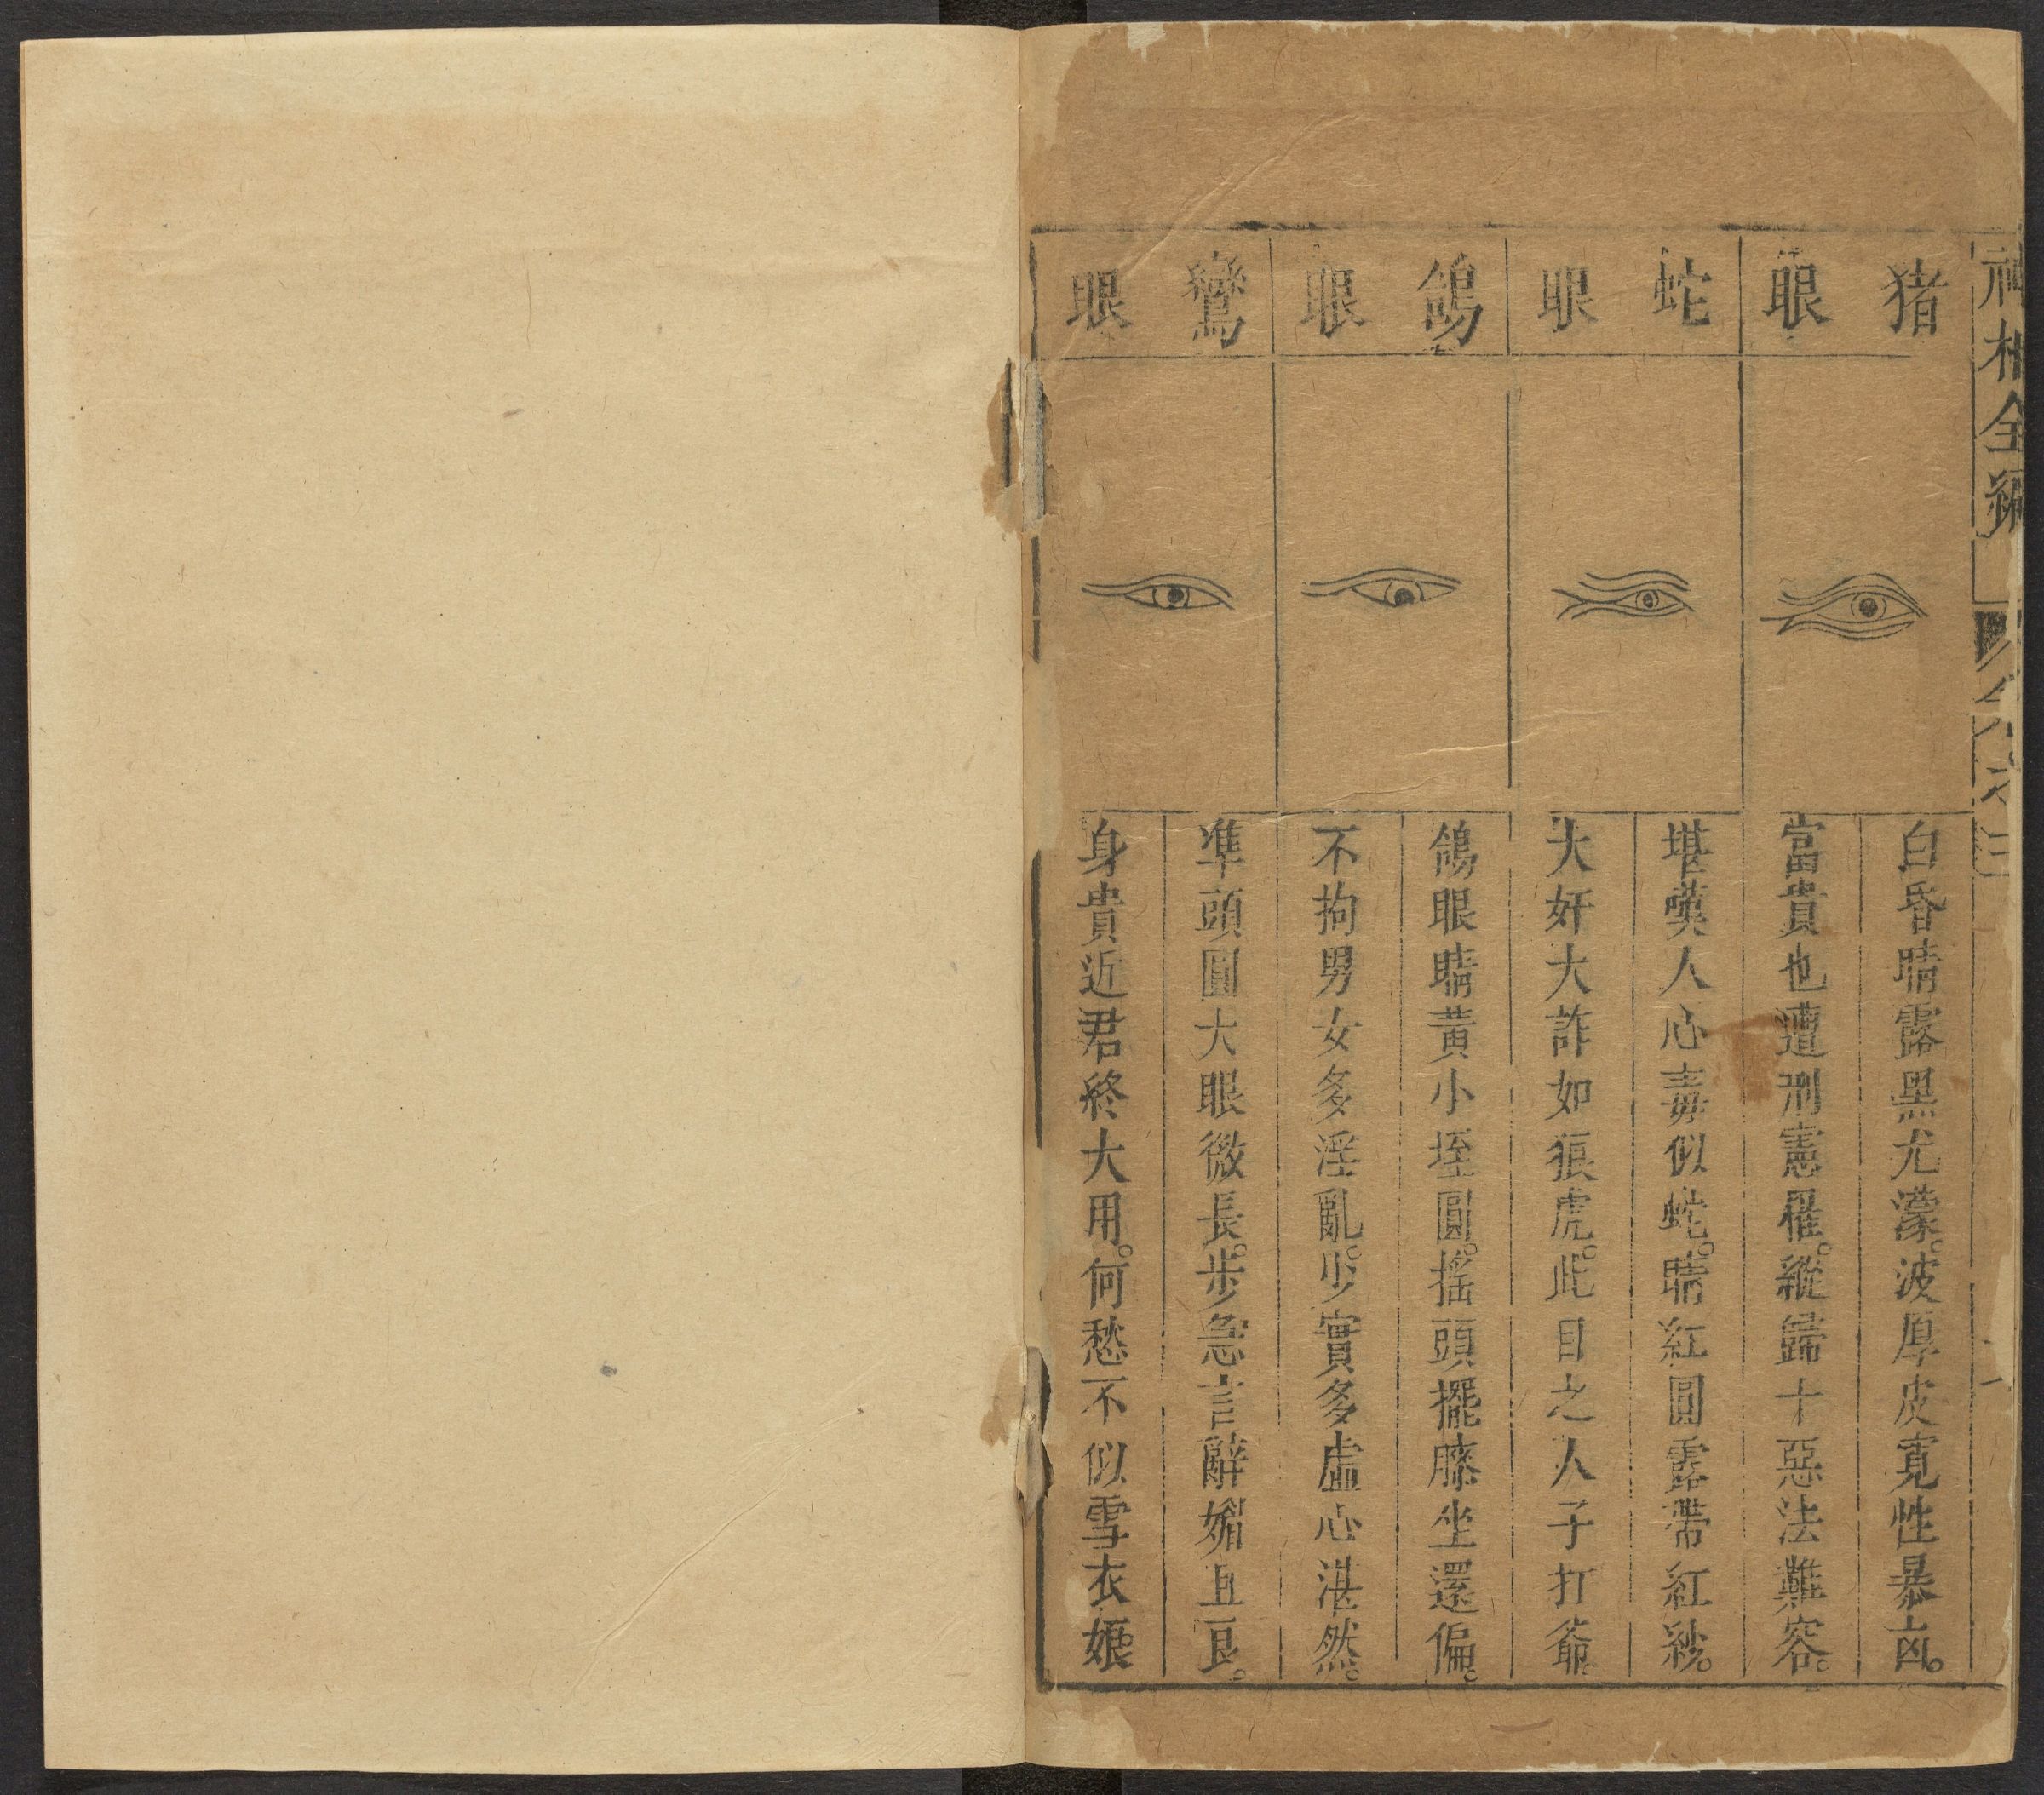 神相全編
猪眼
白昏睛露黑尤濛。波厚皮寛性暴凶。
富貴也遭刑憲罹。縱歸十惡法難容。
蛇眼
堪嘆人心毒似蛇。睛紅圓露帶紅紗。
大奸大詐如狼虎。此目之人子打爺。
鴿眼
鴿眼睛黃小垤圓。揺頭擺膝坐還偏。
不拘男女多淫亂。少實多虛心湛然。
鸞眼
凖頭圓大眼微長。步急言辭媚且良。
身貴近君終大用。何愁不似雪衣娘